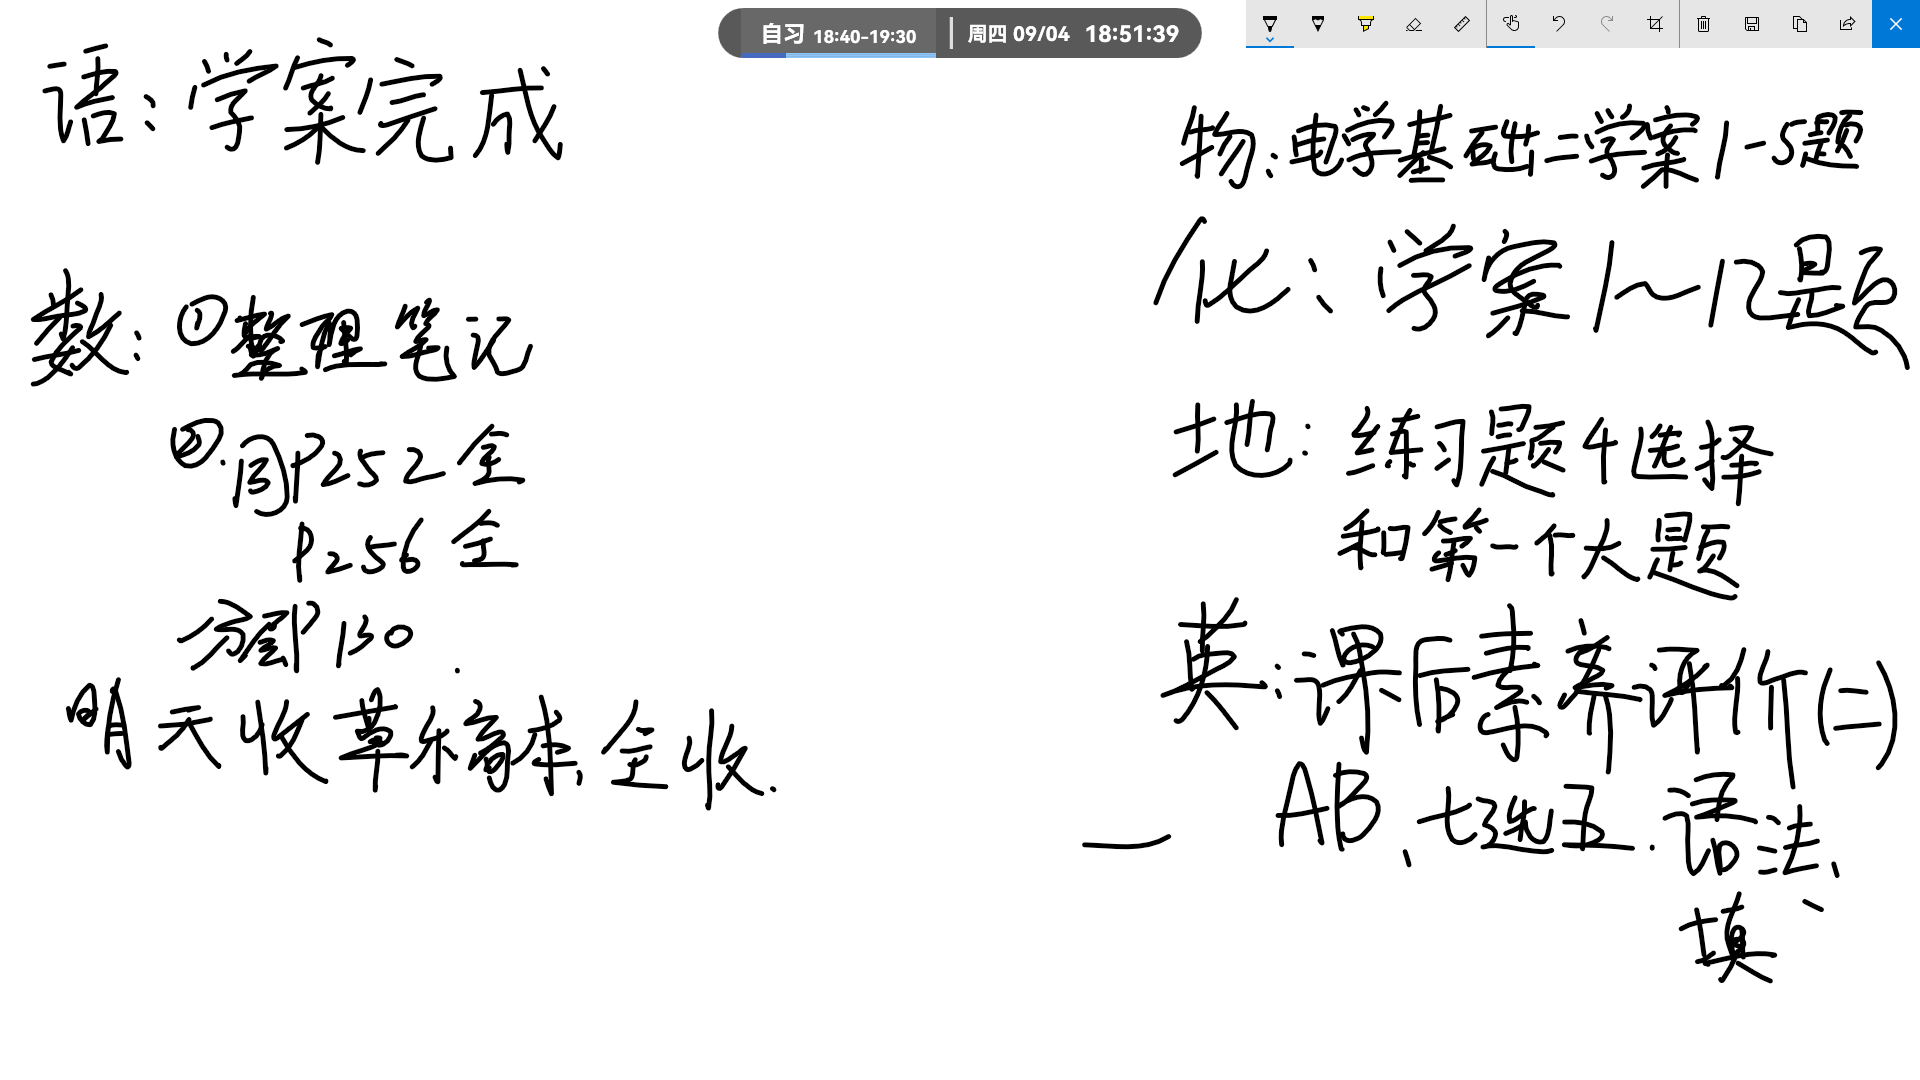 自习 18:40-19:30 周四 09/04 18:51:39
语：学案完成
数：①整理笔记
②.同P252全
P256全
分层P130.
明天收草稿本,全收.
物：电学基础二学案1-5题
化：学案1~12题
地：练习题4选择
和第一个大题
英：课后素养评价(二)
AB、七选五.语法、
填